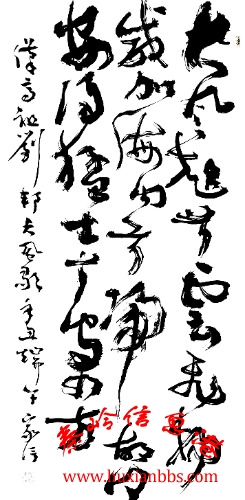 大風起兮雲飛揚
威加海内兮歸故鄉
安得猛士兮守四方
漢高祖劉邦大風歌辛丑端午家信
www.luxianbbs.com